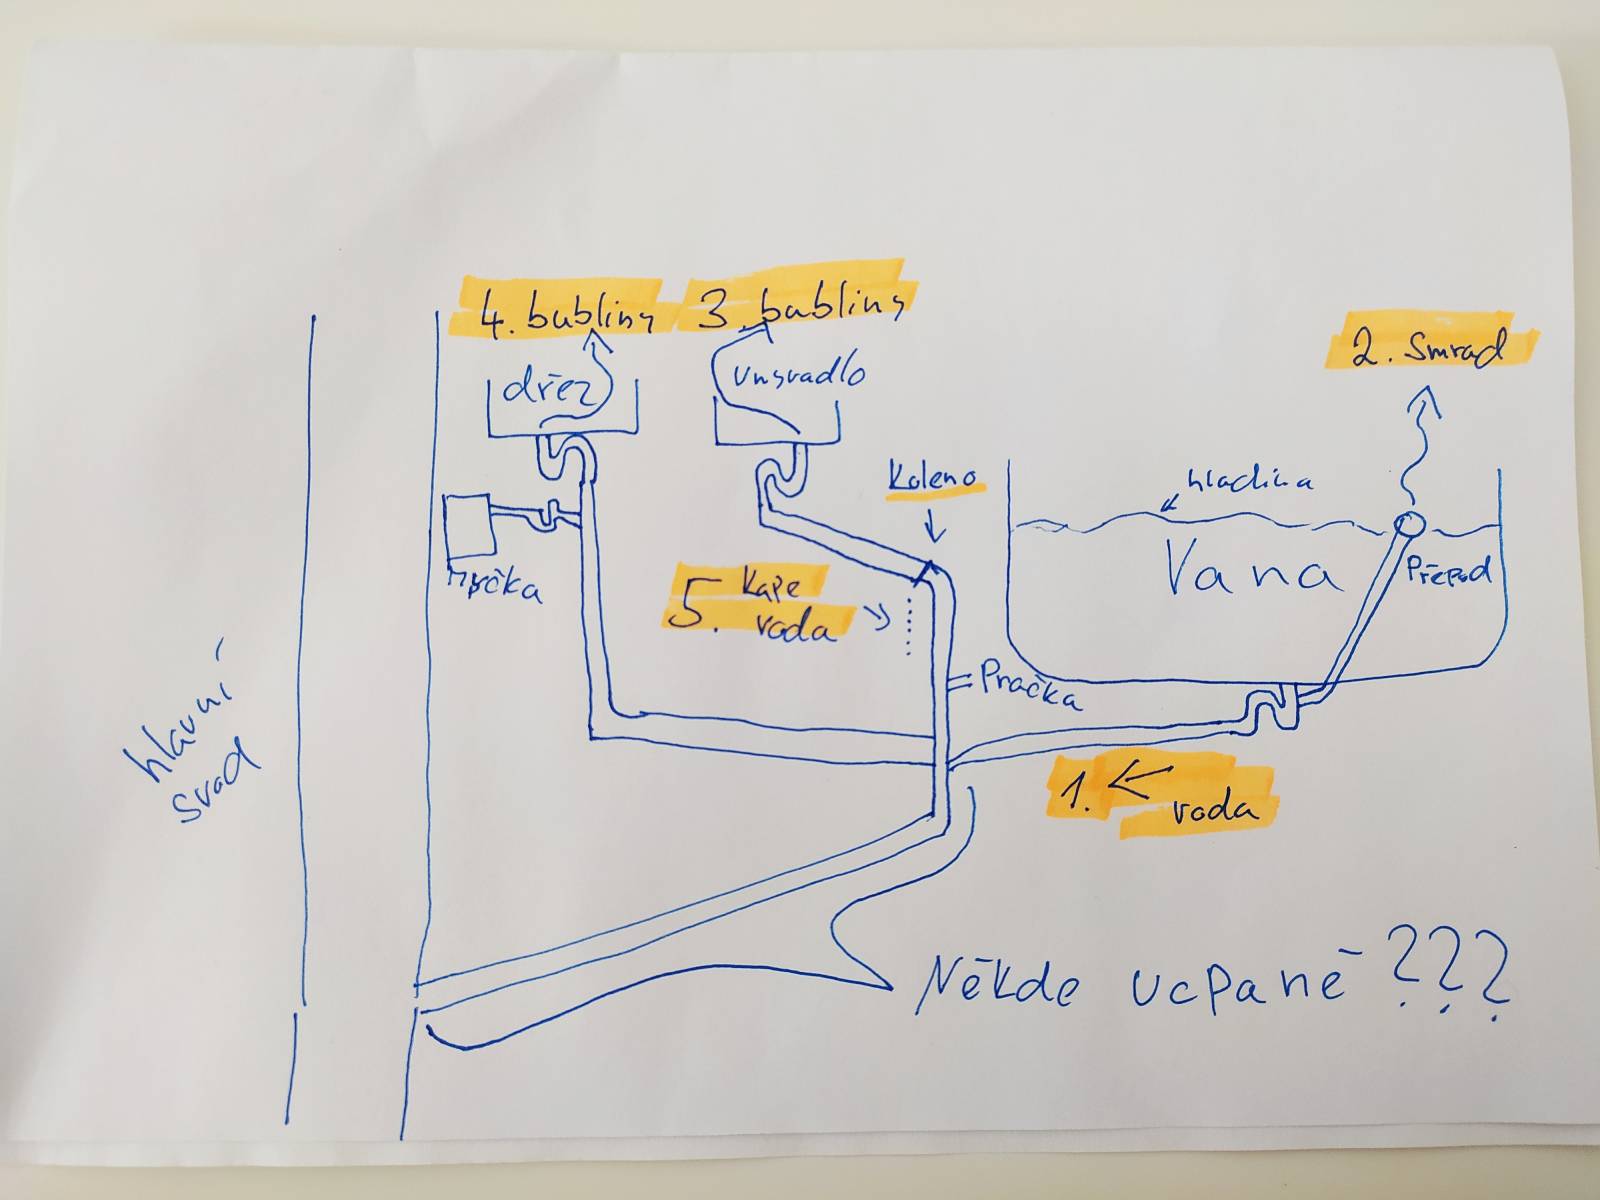 4. bubliny
3 bubliny
2. Smrad
dřez
Umyvadlo
Koleno
hladina
Vana
Přepad
Myčka
5. Kape
voda
Pračka
hlavní
svod
1. ←
voda
Někde ucpané ???